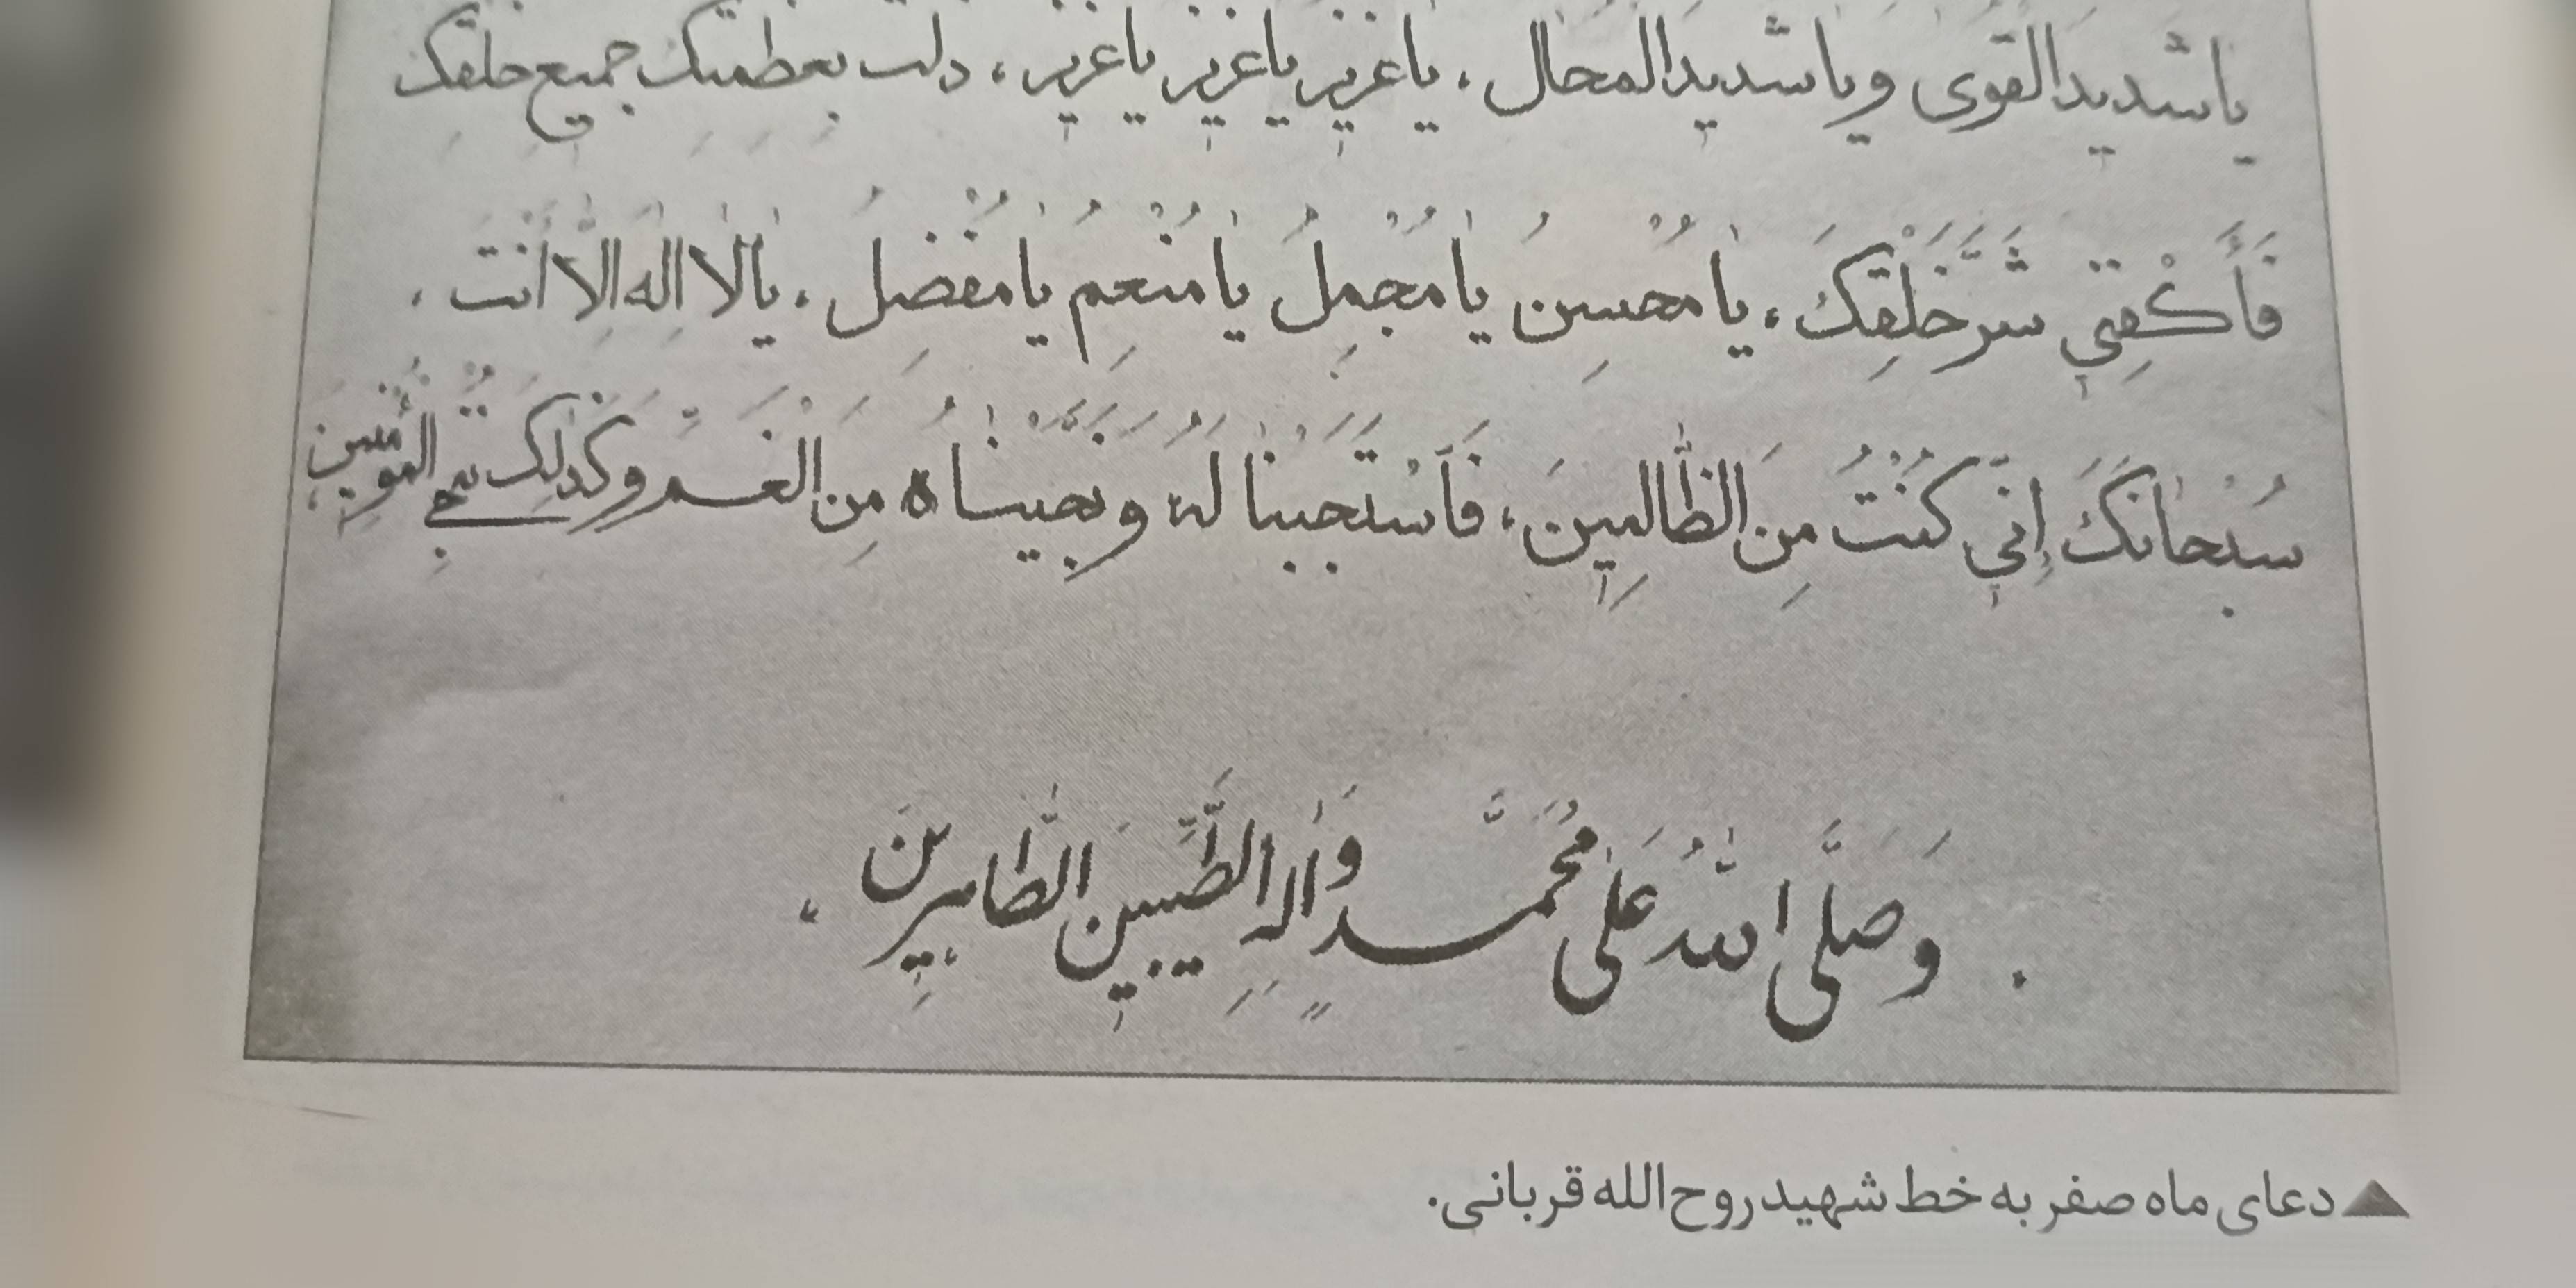 یا شدید القوی و یا شدید المحال، یا عزیز یا عزیز یا عزیز، ذلت بعظمتک جمیع خلقک
فَأَکْفِنی شَرَّ خَلْقِکَ، یا مُحْسِنُ یا مُجْمِلُ یا مُنْعِمُ یا مُفْضِلُ، یا لا اِلٰهَ اِلّا اَنْتَ،
سُبْحانَکَ اِنّی کُنْتُ مِنَ الظّالِمینَ، فَاَسْتَجَبْنا لَهُ وَ نَجَّیْناهُ مِنَ الْغَمِّ وَ کَذٰلِکَ نُنْجِی المُؤْمِنینَ
. وَ صَلَّی اللهُ عَلیٰ مُحَمَّدٍ وَ الِهِ الطَّیِّبینَ الطّاهِرینَ.
دعای ماه صفر به خط شهید روح‌الله قربانی.